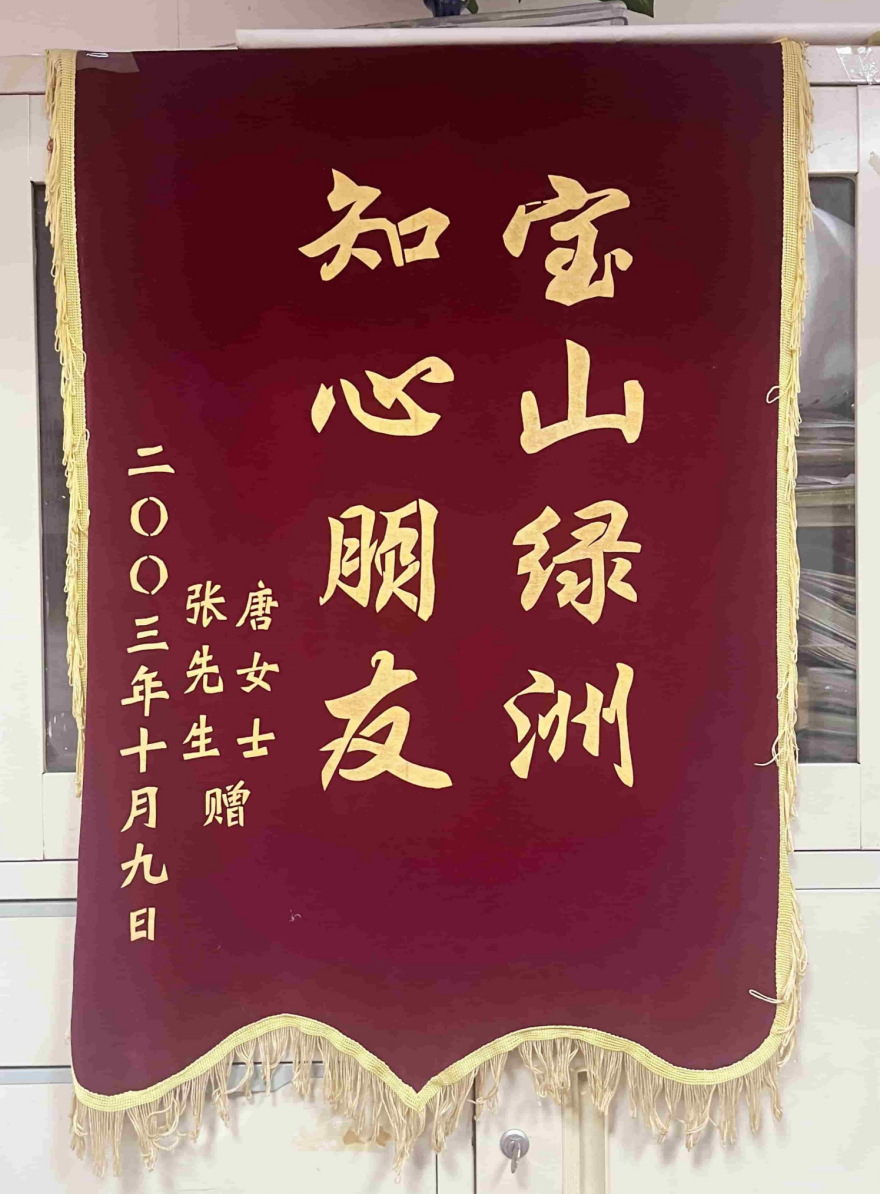 宝山绿洲
知心朋友
唐女士
张先生
赠
二〇〇三年十月九日